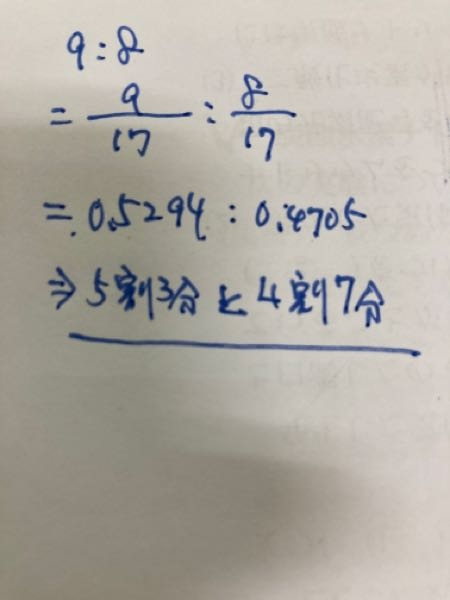 9:8
= 9/17 : 8/17
= 0.5294 : 0.4705
⇒ 5割3分と4割7分